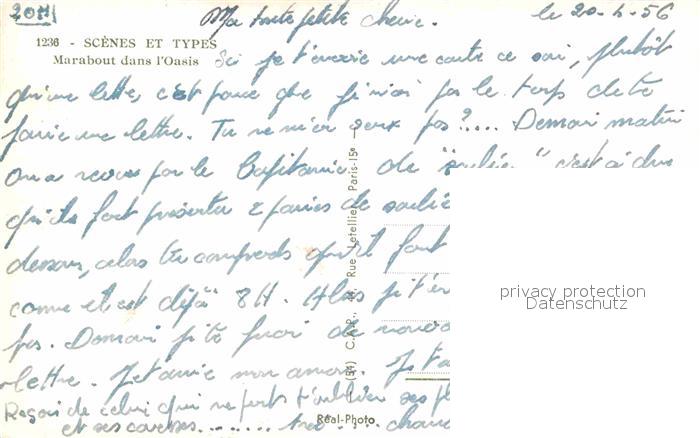 20H
Ma toute petite cherie.
le 20-4-56
1236 - SCÈNES ET TYPES
Marabout dans l'Oasis
Si je t'envoie une carte ce soir, plutôt
qu'une lettre, c'est parce que je n'ai pas le temps de te
faire une lettre. Tu ne m'en veux pas?.... Demain matin
on a revue par le Capitaine de "souliers" c'est à dire
qu'ils faut présenter 2 paires de
dessous, alors tu comprends qu'il faut
comme il est déjà 8H. Alors je t'en
pas. Demain je te ferai de
lettre. Je t'aime mon amour. Je t'a
Reçois de celui qui ne peut t'oublier ses pl
et ses caresses
Réal-Photo
(54) C.A.P., Rue Letellier, Paris-15e
privacy protection
Datenschutz